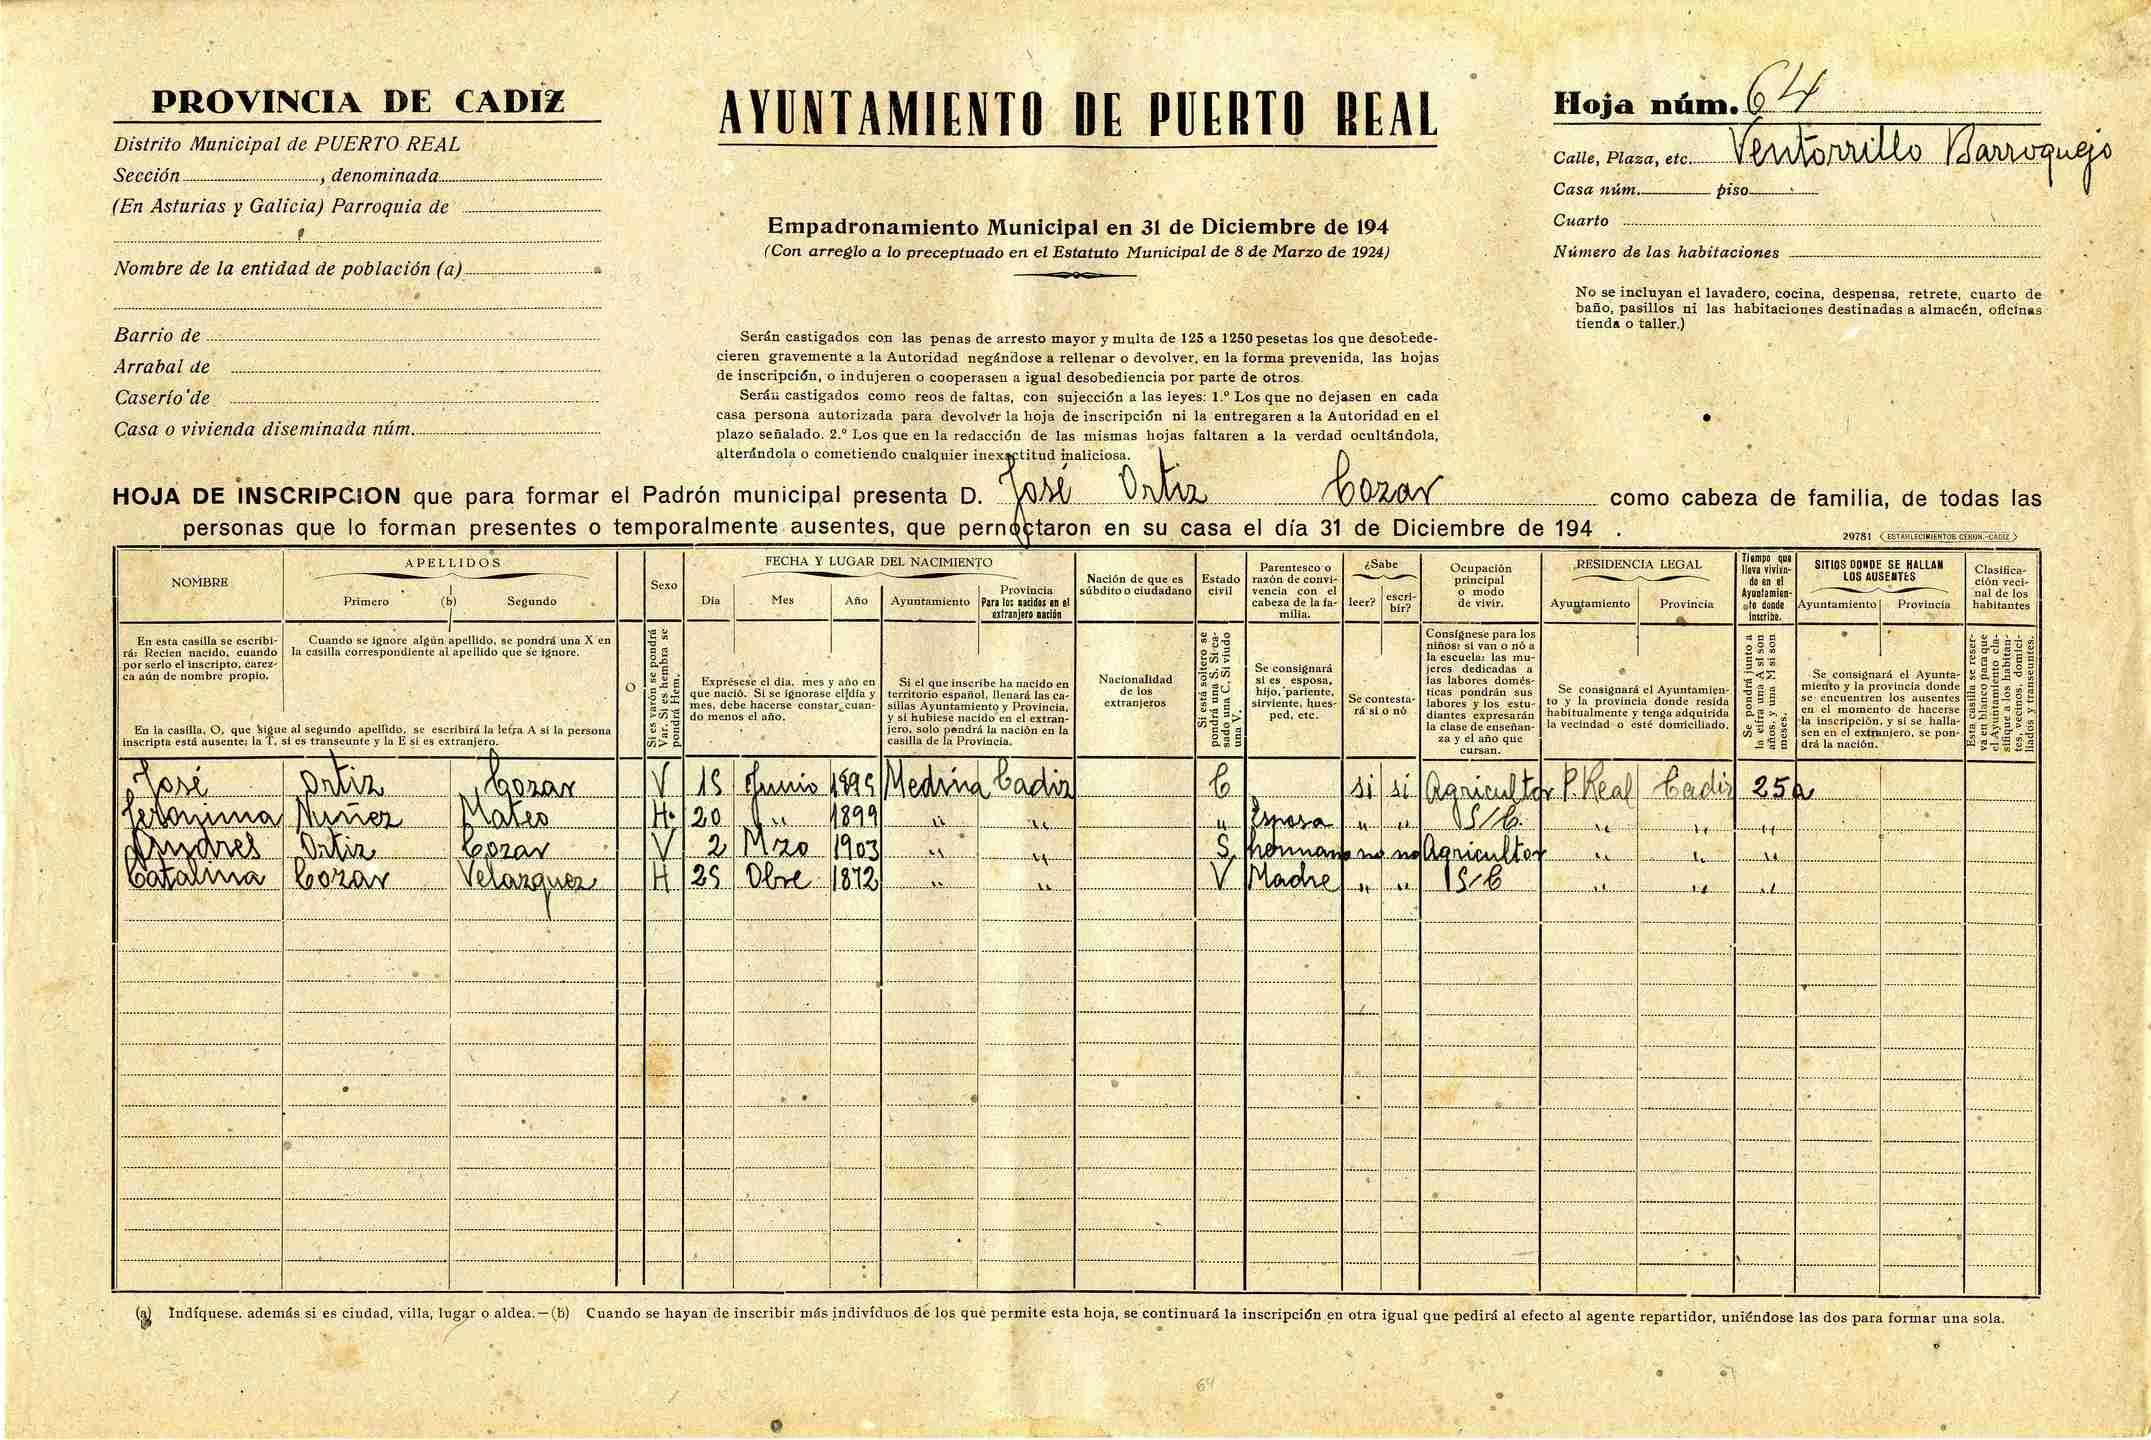 PROVINCIA DE CADIZ
Distrito Municipal de PUERTO REAL
Sección , denominada
(En Asturias y Galicia) Parroquia de
Nombre de la entidad de población (a)
Barrio de
Arrabal de
Caserío de
Casa o vivienda diseminada núm.
AYUNTAMIENTO DE PUERTO REAL
Empadronamiento Municipal en 31 de Diciembre de 194
(Con arreglo a lo preceptuado en el Estatuto Municipal de 8 de Marzo de 1924)
Serán castigados con las penas de arresto mayor y multa de 125 a 1250 pesetas los que desobede-
cieren gravemente a la Autoridad negándose a rellenar o devolver, en la forma prevenida, las hojas
de inscripción, o indujeren o cooperasen a igual desobediencia por parte de otros.
Serán castigados como reos de faltas, con sujección a las leyes: 1.º Los que no dejasen en cada
casa persona autorizada para devolver la hoja de inscripción ni la entregaren a la Autoridad en el
plazo señalado. 2.º Los que en la redacción de las mismas hojas faltaren a la verdad ocultándola,
alterándola o cometiendo cualquier inexactitud maliciosa.
Hoja núm. 64
Calle, Plaza, etc. Ventorrillo Barroquejo
Casa núm. piso
Cuarto
Número de las habitaciones
No se incluyan el lavadero, cocina, despensa, retrete, cuarto de
baño, pasillos ni las habitaciones destinadas a almacén, oficinas
tienda o taller.)
HOJA DE INSCRIPCION que para formar el Padrón municipal presenta D. José Ortiz Cozar como cabeza de familia, de todas las
personas que lo forman presentes o temporalmente ausentes, que pernoctaron en su casa el día 31 de Diciembre de 194 .
29781 ESTABLECIMIENTOS CERON.-CADIZ
NOMBRE
APELLIDOS
Primero (b) Segundo
O
Sexo
FECHA Y LUGAR DEL NACIMIENTO
Día Mes Año Ayuntamiento
Provincia
Para los nacidos en el
extranjero nación
Nación de que es
súbdito o ciudadano
Estado
civil
Parentesco o
razón de convi-
vencia con el
cabeza de la fa-
milia.
¿Sabe
leer? escri-
bir?
Ocupación
principal
o modo
de vivir.
RESIDENCIA LEGAL
Ayuntamiento Provincia
Tiempo que
lleva vivien-
do en el
Ayuntamien-
to donde
inscribe.
SITIOS DONDE SE HALLAN
LOS AUSENTES
Ayuntamiento Provincia
Clasifica-
ción veci-
nal de los
habitantes
En esta casilla se escribi-
rá: Recien nacido, cuando
por serlo el inscripto, carez-
ca aún de nombre propio.
Cuando se ignore algún apellido, se pondrá una X en
la casilla correspondiente al apellido que se ignore.
En la casilla, O, que sigue al segundo apellido, se escribirá la letra A si la persona
inscripta está ausente; la T, si es transeunte y la E si es extranjero.
Si es varón se pondrá
Var. Si es hembra se
pondrá Hem.
Exprésese el día, mes y año en
que nació. Si se ignorase el día y
mes, debe hacerse constar cuan-
do menos el año.
Si el que inscribe ha nacido en
territorio español, llenará las ca-
sillas Ayuntamiento y Provincia,
y si hubiese nacido en el extran-
jero, solo pondrá la nación en la
casilla de la Provincia.
Nacionalidad
de los
extranjeros
Si está soltero se
pondrá una S. Si ca-
sado una C, Si viudo
una V.
Se consignará
si es esposa,
hijo, pariente,
sirviente, hues-
ped, etc.
Se contesta-
rá si o nó
Consígnese para los
niños: si van o nó a
la escuela: las mu-
jeres dedicadas a
las labores domés-
ticas pondrán sus
labores y los estu-
diantes expresarán
la clase de enseñan-
za y el año que
cursan.
Se consignará el Ayuntamien-
to y la provincia donde resida
habitualmente y tenga adquirida
la vecindad o esté domiciliado.
Se pondrá junto a
la cifra una A si son
años, y una M si son
meses.
Se consignará el Ayunta-
miento y la provincia donde
se encuentren los ausentes
en el momento de hacerse
la inscripción, y si se halla-
sen en el extranjero, se pon-
drá la nación.
Esta casilla se reser-
va en blanco para que
el Ayuntamiento cla-
sifique a los habitan-
tes, vecinos, domici-
liados y transeuntes.
José Ortiz Cozar V 15 Junio 1895 Medina Cadiz C si si Agricultor P. Real Cadiz 25a
Jeronima Nuñez Mateo H. 20 " 1899 " " " Esposa " " S/C. " " "
Andres Ortiz Cozar V 2 Mzo 1903 " " S hermano no no Agricultor " " "
Catalina Cozar Velazquez H 25 Obre 1872 " " V Madre " " S/C " " "
(a) Indíquese. además si es ciudad, villa, lugar o aldea.—(b) Cuando se hayan de inscribir más individuos de los que permite esta hoja, se continuará la inscripción en otra igual que pedirá al efecto al agente repartidor, uniéndose las dos para formar una sola.
64